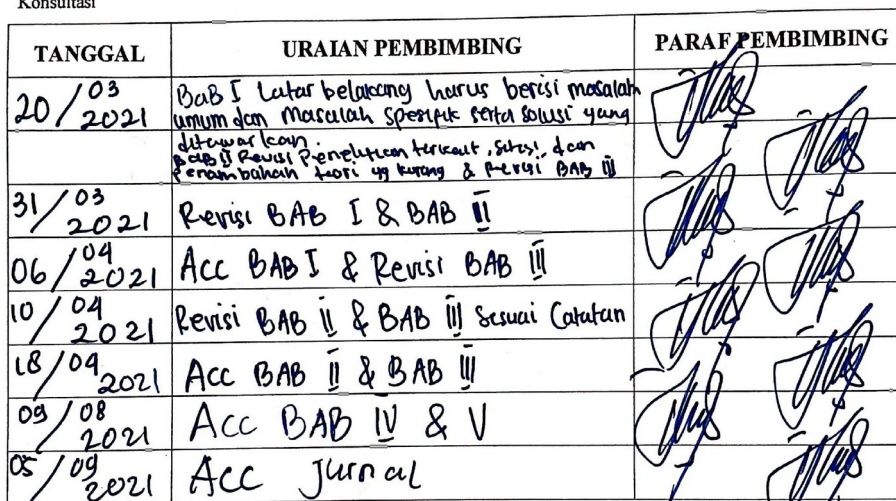 Konsultasi
TANGGAL URAIAN PEMBIMBING PARAF PEMBIMBING
20/03 2021 BaB I Latar belakang harus berisi masalah
umum dan Masalah spesifik serta solusi yang
ditawarkan.
BaB II Revisi Penelitian terkait, sitasi, dan
Penambahan teori yg kurang & Revisi BAB III
31/03 2021 Revisi BAB I & BAB II
06/04 2021 Acc BAB I & Revisi BAB III
10/04 2021 Revisi BAB II & BAB III Sesuai Catatan
18/04 2021 Acc BAB II & BAB III
09/08 2021 Acc BAB IV & V
05/09 2021 Acc Jurnal